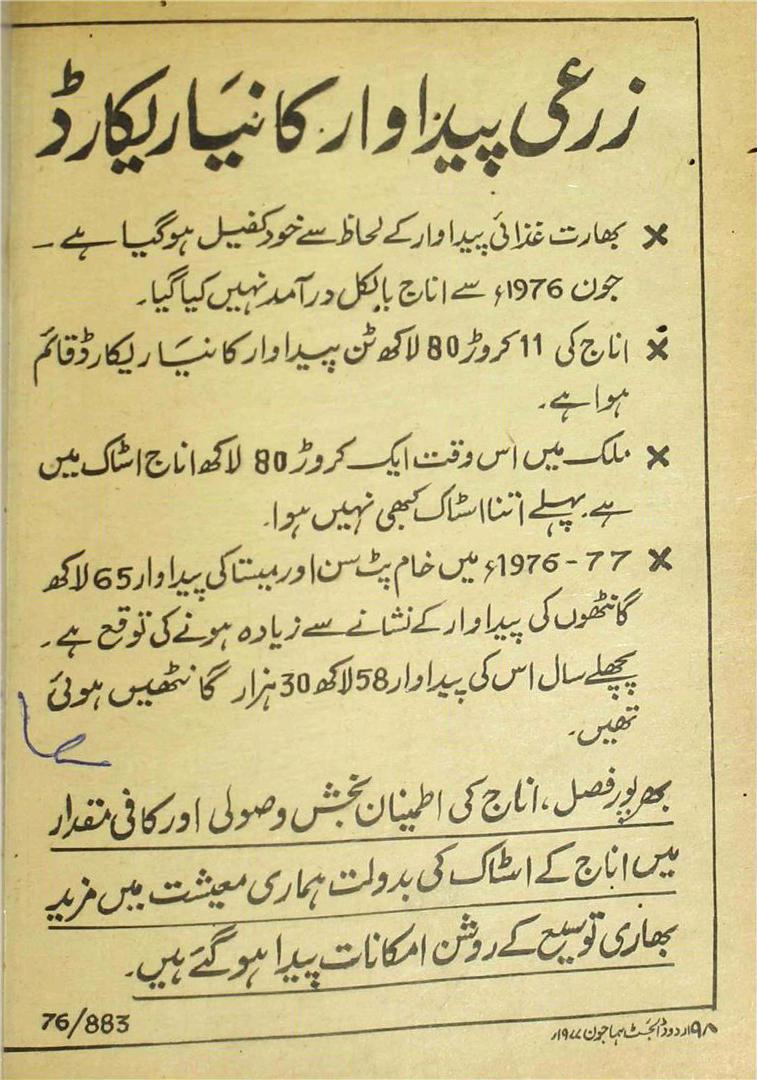 زرعی پیداوار کا نیا ریکارڈ
× بھارت غذائی پیداوار کے لحاظ سے خود کفیل ہوگیا ہے ۔
جون 1976ء سے اناج بالکل درآمد نہیں کیا گیا۔
× اناج کی 11 کروڑ 80 لاکھ ٹن پیداوار کا نیا ریکارڈ قائم
ہوا ہے۔
× ملک میں اس وقت ایک کروڑ 80 لاکھ اناج اسٹاک میں
ہے۔ پہلے اتنا اسٹاک کبھی نہیں ہوا۔
× 1976-77ء میں خام پٹ سن اور میستا کی پیداوار 65 لاکھ
گانٹھوں کی پیداوار کے نشانے سے زیادہ ہونے کی توقع ہے۔
پچھلے سال اس کی پیداوار 58 لاکھ 30 ہزار گانٹھیں ہوئی
تھیں۔
بھرپور فصل، اناج کی اطمینان بخش وصولی اور کافی مقدار
میں اناج کے اسٹاک کی بدولت ہماری معیشت میں مزید
بھاری توسیع کے روشن امکانات پیدا ہوگئے ہیں۔
76/883
۹۸ اردو ڈائجسٹ ہما جون ۱۹۷۷ء